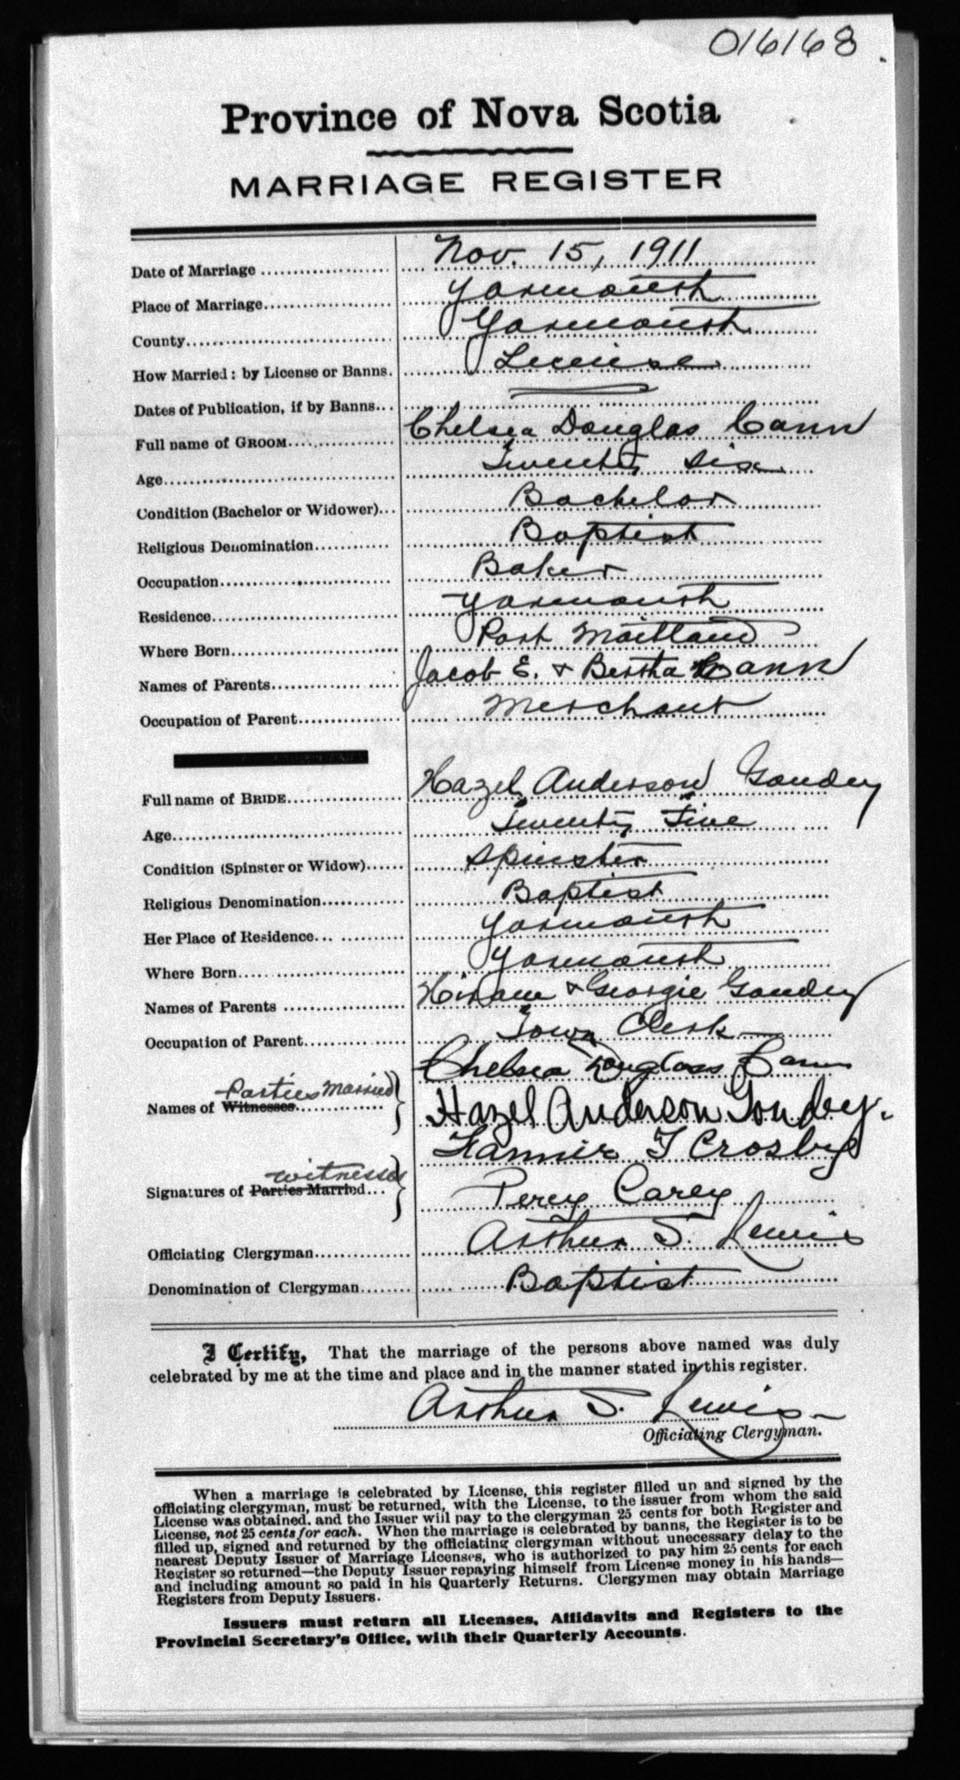 016168
Province of Nova Scotia
MARRIAGE REGISTER
Date of Marriage Nov. 15, 1911
Place of Marriage Yarmouth
County Yarmouth
How Married: by License or Banns. License
Dates of Publication, if by Banns
Full name of GROOM Chelsea Douglas Cann
Age Twenty Six
Condition (Bachelor or Widower) Bachelor
Religious Denomination Baptist
Occupation Baker
Residence Yarmouth
Where Born Port Maitland
Names of Parents Jacob E. & Bertha Cann
Occupation of Parent Merchant
Full name of BRIDE Hazel Anderson Goudey
Age Twenty Five
Condition (Spinster or Widow) Spinster
Religious Denomination Baptist
Her Place of Residence Yarmouth
Where Born Yarmouth
Names of Parents Hiram & Georgie Goudey
Occupation of Parent Town Clerk
Chelsea Douglass Cann
Parties Married
Names of Witnesses Hazel Anderson Goudey.
Fannie T Crosby
witnesses
Signatures of Parties Married Percy Carey
Officiating Clergyman Arthur S. Lewis
Denomination of Clergyman Baptist
I Certify, That the marriage of the persons above named was duly
celebrated by me at the time and place and in the manner stated in this register.
Arthur S. Lewis
Officiating Clergyman.
When a marriage is celebrated by License, this register filled up and signed by the
officiating clergyman, must be returned, with the License, to the issuer from whom the said
License was obtained, and the Issuer will pay to the clergyman 25 cents for both Register and
License, not 25 cents for each. When the marriage is celebrated by banns, the Register is to be
filled up, signed and returned by the officiating clergyman without unnecessary delay to the
nearest Deputy Issuer of Marriage Licenses, who is authorized to pay him 25 cents for each
Register so returned—the Deputy Issuer repaying himself from License money in his hands—
and including amount so paid in his Quarterly Returns. Clergymen may obtain Marriage
Registers from Deputy Issuers.
Issuers must return all Licenses, Affidavits and Registers to the
Provincial Secretary's Office, with their Quarterly Accounts.